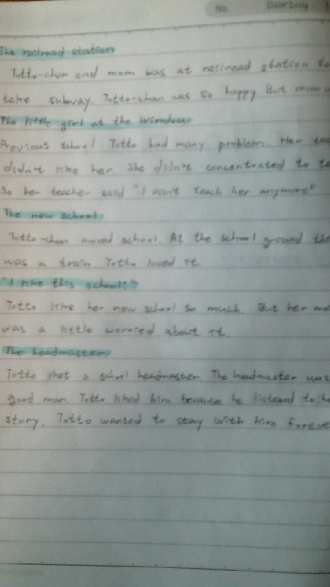 No. Date
The railroad station
Totto-chan and mom was at railroad station to
take subway. Totto-chan was so happy. But mom
The little girl at the window
Previous school Totto had many problem. Her tea
didn't like her. She didn't concentrated to te
So her teacher said "I can't teach her anymore"
The new school
Totto-chan moved school. At the school ground the
was a train. Totto loved it.
"I like this school!"
Totto like her new school so much. But her mo
was a little worried about it.
The headmaster
Totto met a school headmaster. The headmaster was
good man. Totto liked him because he listend to he
story. Totto wanted to stay with him foreve